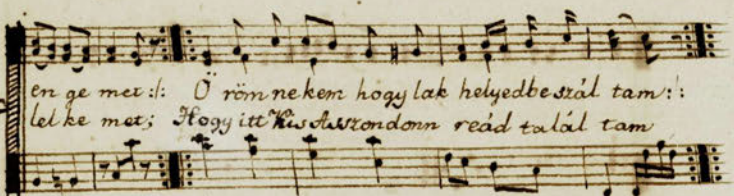 en ge met :|: Ö röm ne kem hogy lak helyedbe szál tam :|:
lel ke met; Hogy itt Kis Asszondonn reád talál tam